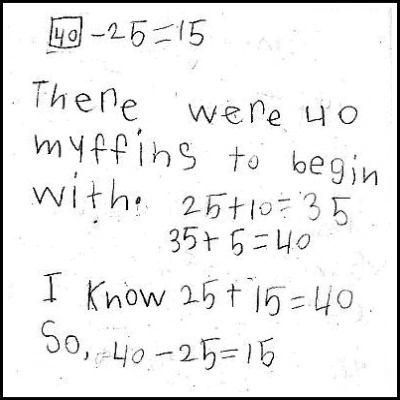 40 -25=15
There were 40
myffins to begin
with. 25+10=35
35+5=40
I know 25+15=40
So, 40-25=15